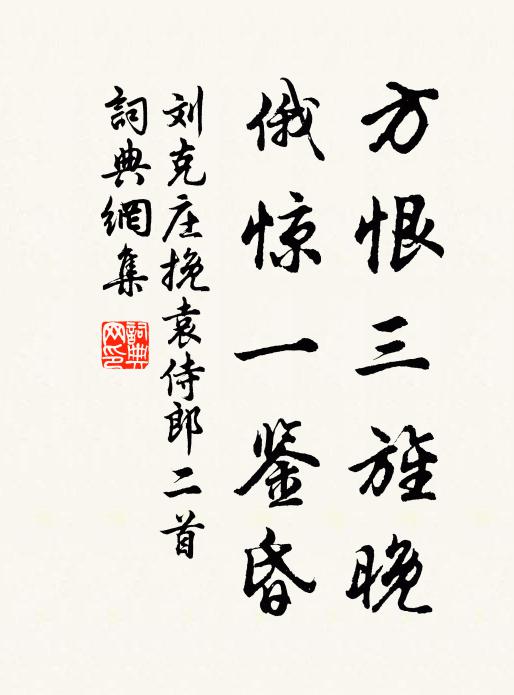 方恨三旌晚
俄惊一鉴昏
刘克庄挽袁侍郎二首
詞典網集
詞典网印